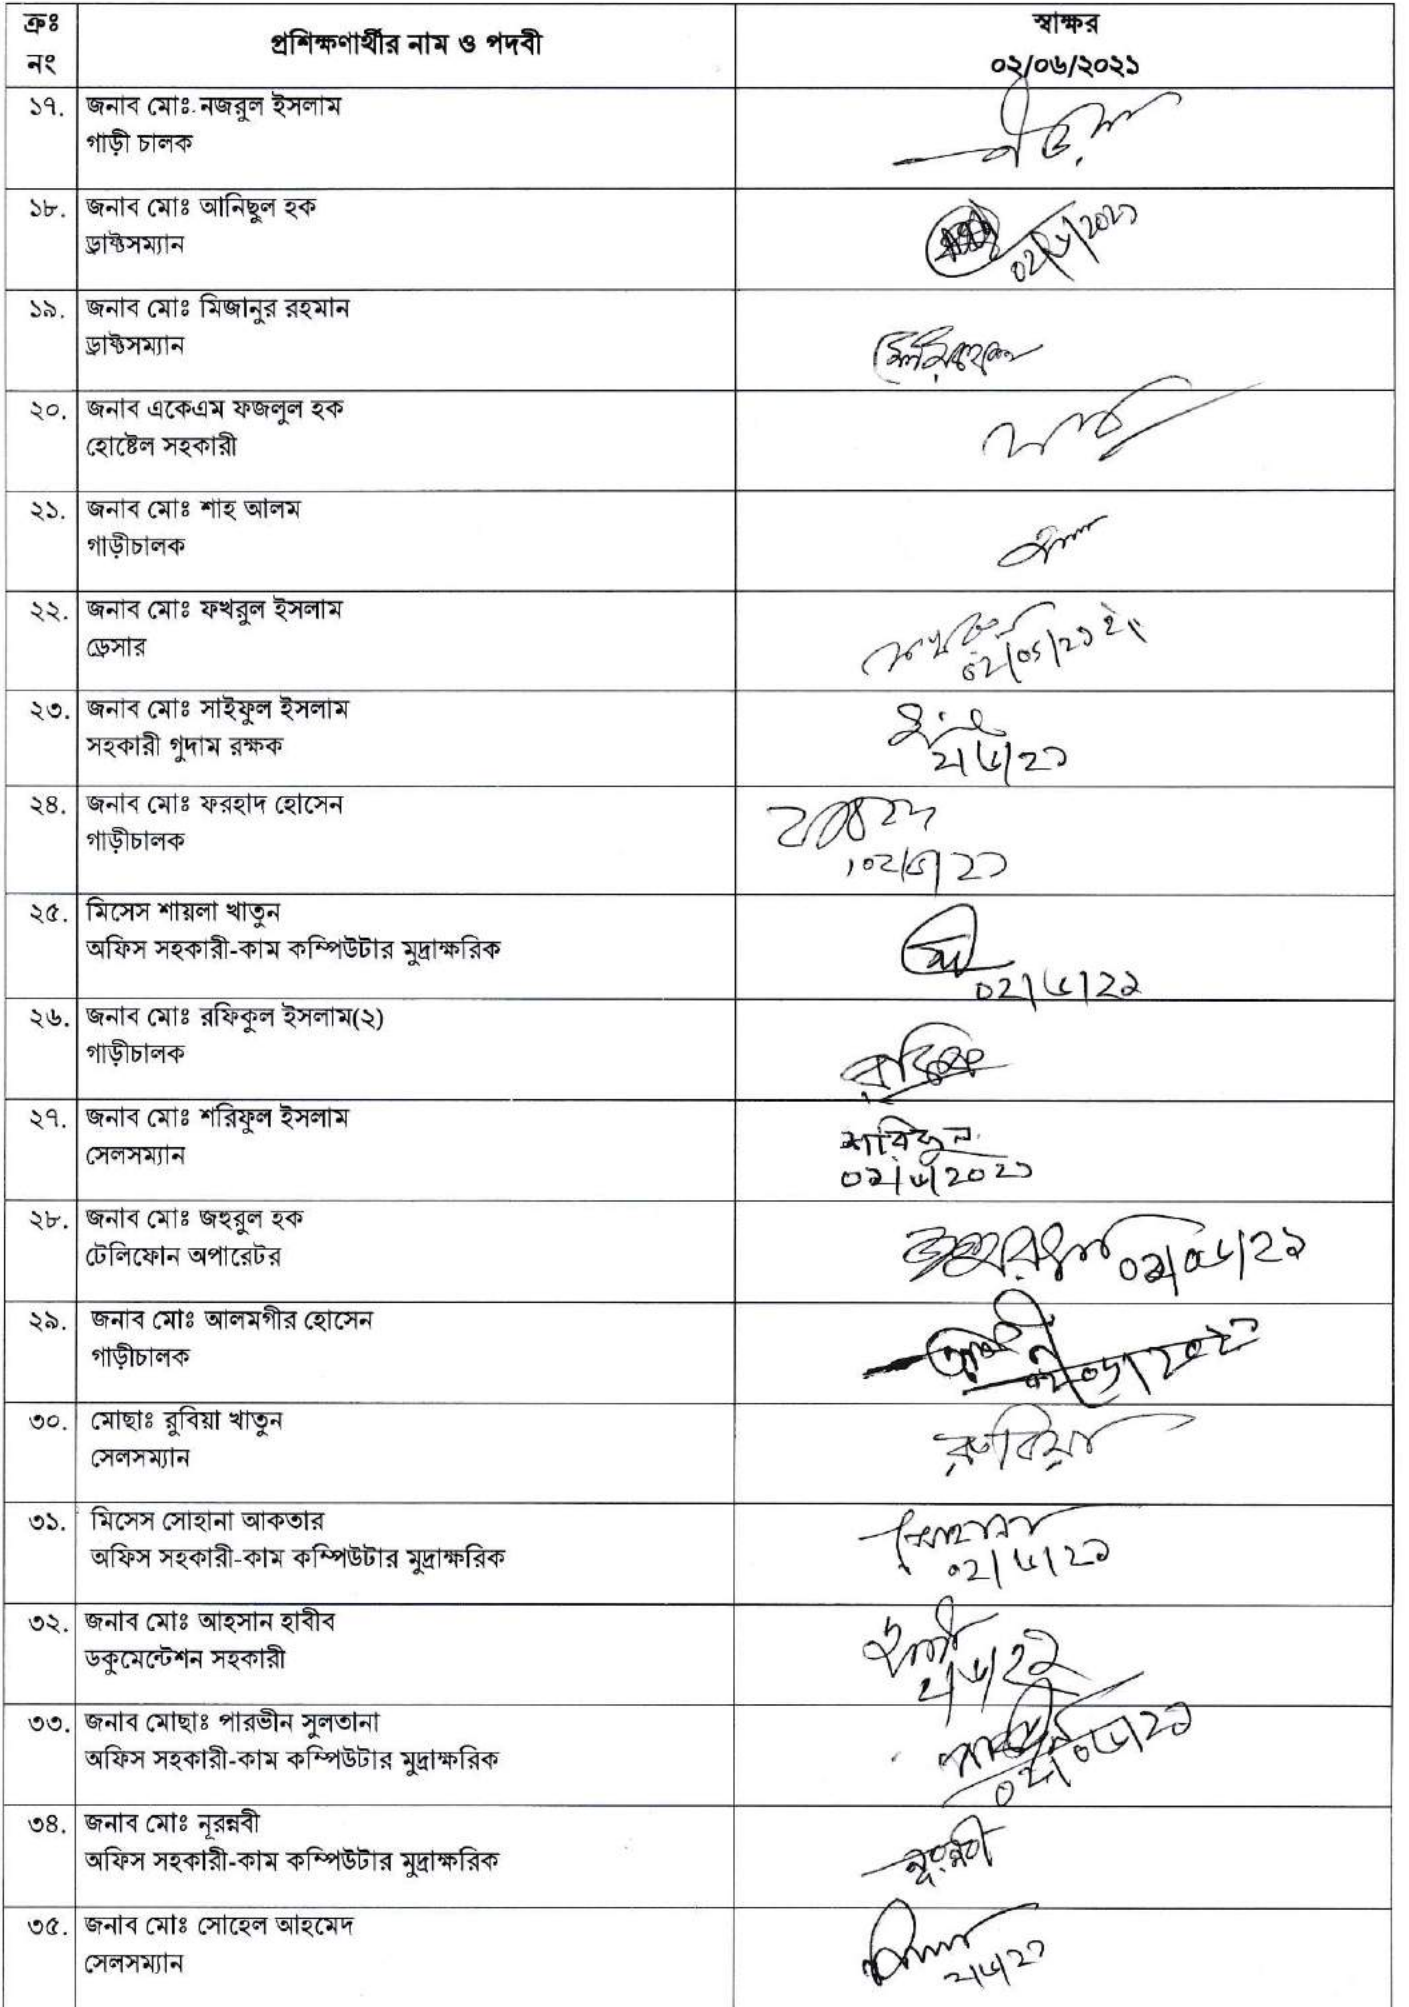 ক্রঃ নং
প্রশিক্ষণার্থীর নাম ও পদবী
স্বাক্ষর
০২/০৬/২০২১
১৭. জনাব মোঃ নজরুল ইসলাম
গাড়ী চালক
১৮. জনাব মোঃ আনিছুল হক
ড্রাফ্টসম্যান
০২/৬/২০২১
১৯. জনাব মোঃ মিজানুর রহমান
ড্রাফ্টসম্যান
২০. জনাব একেএম ফজলুল হক
হোষ্টেল সহকারী
২১. জনাব মোঃ শাহ আলম
গাড়ীচালক
২২. জনাব মোঃ ফখরুল ইসলাম
ড্রেসার
২৩. জনাব মোঃ সাইফুল ইসলাম
সহকারী গুদাম রক্ষক
২/৬/২১
২৪. জনাব মোঃ ফরহাদ হোসেন
গাড়ীচালক
০২/৬/২১
২৫. মিসেস শায়লা খাতুন
অফিস সহকারী-কাম কম্পিউটার মুদ্রাক্ষরিক
০২/৬/২১
২৬. জনাব মোঃ রফিকুল ইসলাম(২)
গাড়ীচালক
২৭. জনাব মোঃ শরিফুল ইসলাম
সেলসম্যান
শরিফুল
০২/৬/২০২১
২৮. জনাব মোঃ জহুরুল হক
টেলিফোন অপারেটর
০২/০৬/২১
২৯. জনাব মোঃ আলমগীর হোসেন
গাড়ীচালক
০২/০৬/২০২১
৩০. মোছাঃ রুবিয়া খাতুন
সেলসম্যান
রুবিয়া
৩১. মিসেস সোহানা আকতার
অফিস সহকারী-কাম কম্পিউটার মুদ্রাক্ষরিক
সোহানা
০২/৬/২১
৩২. জনাব মোঃ আহসান হাবীব
ডকুমেন্টেশন সহকারী
২/৬/২১
৩৩. জনাব মোছাঃ পারভীন সুলতানা
অফিস সহকারী-কাম কম্পিউটার মুদ্রাক্ষরিক
০২/০৬/২১
৩৪. জনাব মোঃ নূরন্নবী
অফিস সহকারী-কাম কম্পিউটার মুদ্রাক্ষরিক
নূরন্নবী
৩৫. জনাব মোঃ সোহেল আহমেদ
সেলসম্যান
২/৬/২১